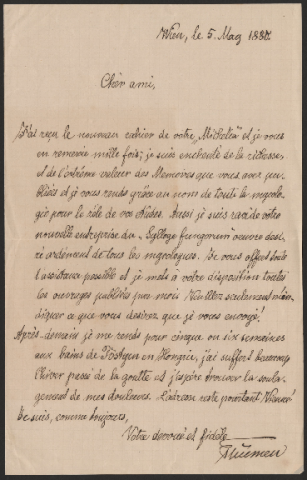 Wien, le 5. Março 1881.
Chèr ami,
J'ai reçu le nouveau cahier de votre „Michelia" et je vous
en remercie mille fois; je suis enchanté de la richesse
et de l'extrême valeur des Memoires que vous avez pu-
bliés et je vous rends grâce au nom de toute la mycolo-
gie pour le rôle de vos études. Aussi je suis ravi de votre
nouvelle entreprise du „Sylloge fungorum" oeuvre desi-
ré ardemment de tous les mycologues. Je vous offre toute
l'assistance possible et je mets à votre disposition toutes
les ouvrages publiés par moi. Veuillez seulement m'in-
diquer ce que vous desirez que je vous envoye!
Après-demain je me rends pour cinque ou six semaines
aux bains de Pöstyen en Hongrie, j'ai suffert beaucoup
l'hiver passé de la goutte et j'espère trouver la soula-
gement de mes douleurs. L'adresse reste pourtant Vienne!
Je suis, comme toujours,
Votre devoué et fidèle
Thümen